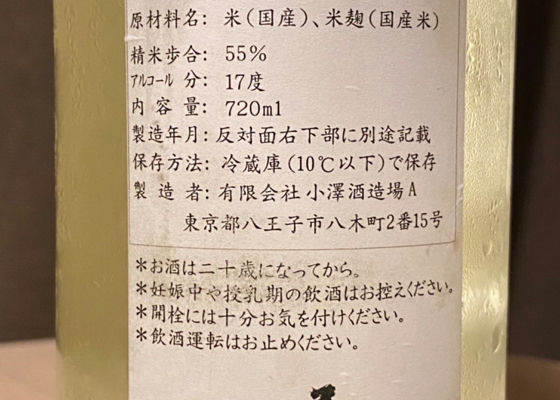 原材料名: 米(国産)、米麹(国産米)
精米歩合: 55%
アルコール 分: 17度
内 容 量: 720ml
製造年月: 反対面右下部に別途記載
保存方法: 冷蔵庫(10℃以下)で保存
製 造 者: 有限会社 小澤酒造場A
東京都八王子市八木町2番15号
*お酒は二十歳になってから。
*妊娠中や授乳期の飲酒はお控えください。
*開栓には十分お気を付けください。
*飲酒運転はお止めください。